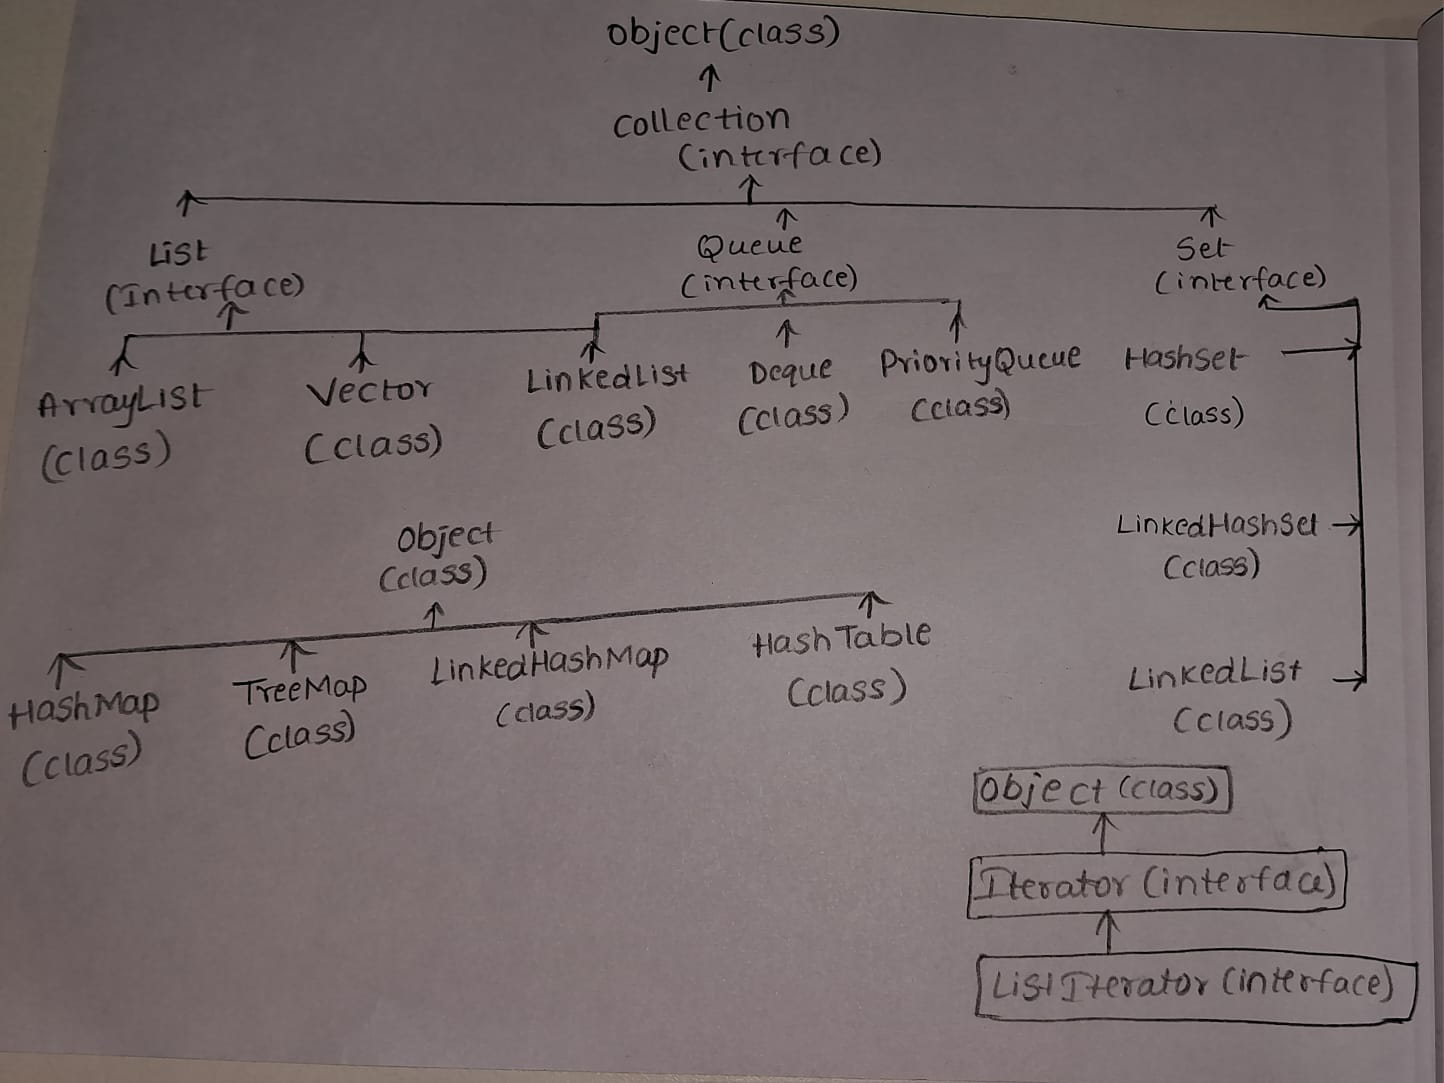 Object(class)
Collection
(interface)
List
(Interface)
Queue
(interface)
Set
(interface)
ArrayList
(class)
Vector
(class)
LinkedList
(class)
Deque
(class)
PriorityQueue
(class)
HashSet
(class)
LinkedHashSet
(class)
LinkedList
(class)
Object
(class)
HashMap
(class)
TreeMap
(class)
LinkedHashMap
(class)
HashTable
(class)
Object (class)
Iterator (interface)
ListIterator (interface)